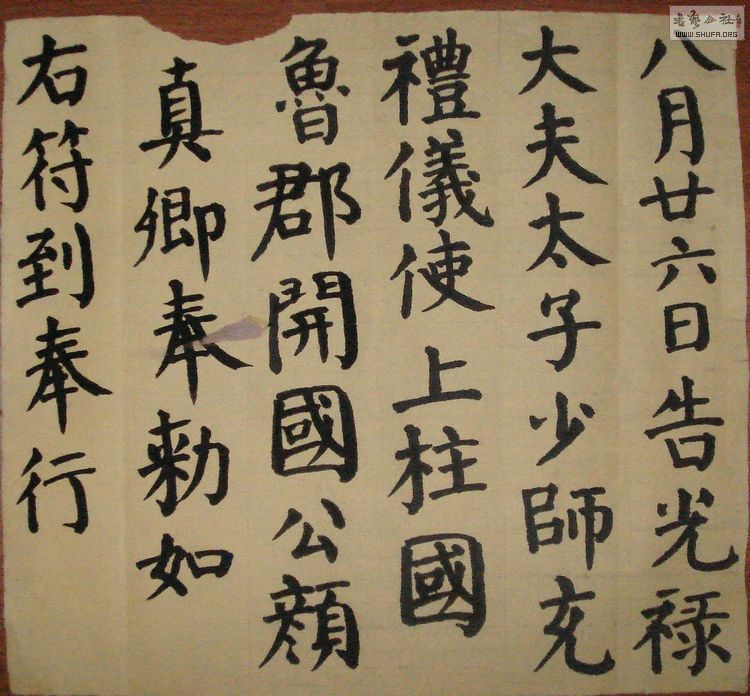 八月廿六日告光禄
大夫太子少師充
禮儀使上柱國
魯郡開國公顔
真卿奉勑如
右符到奉行
WWW.SHUFA.ORG